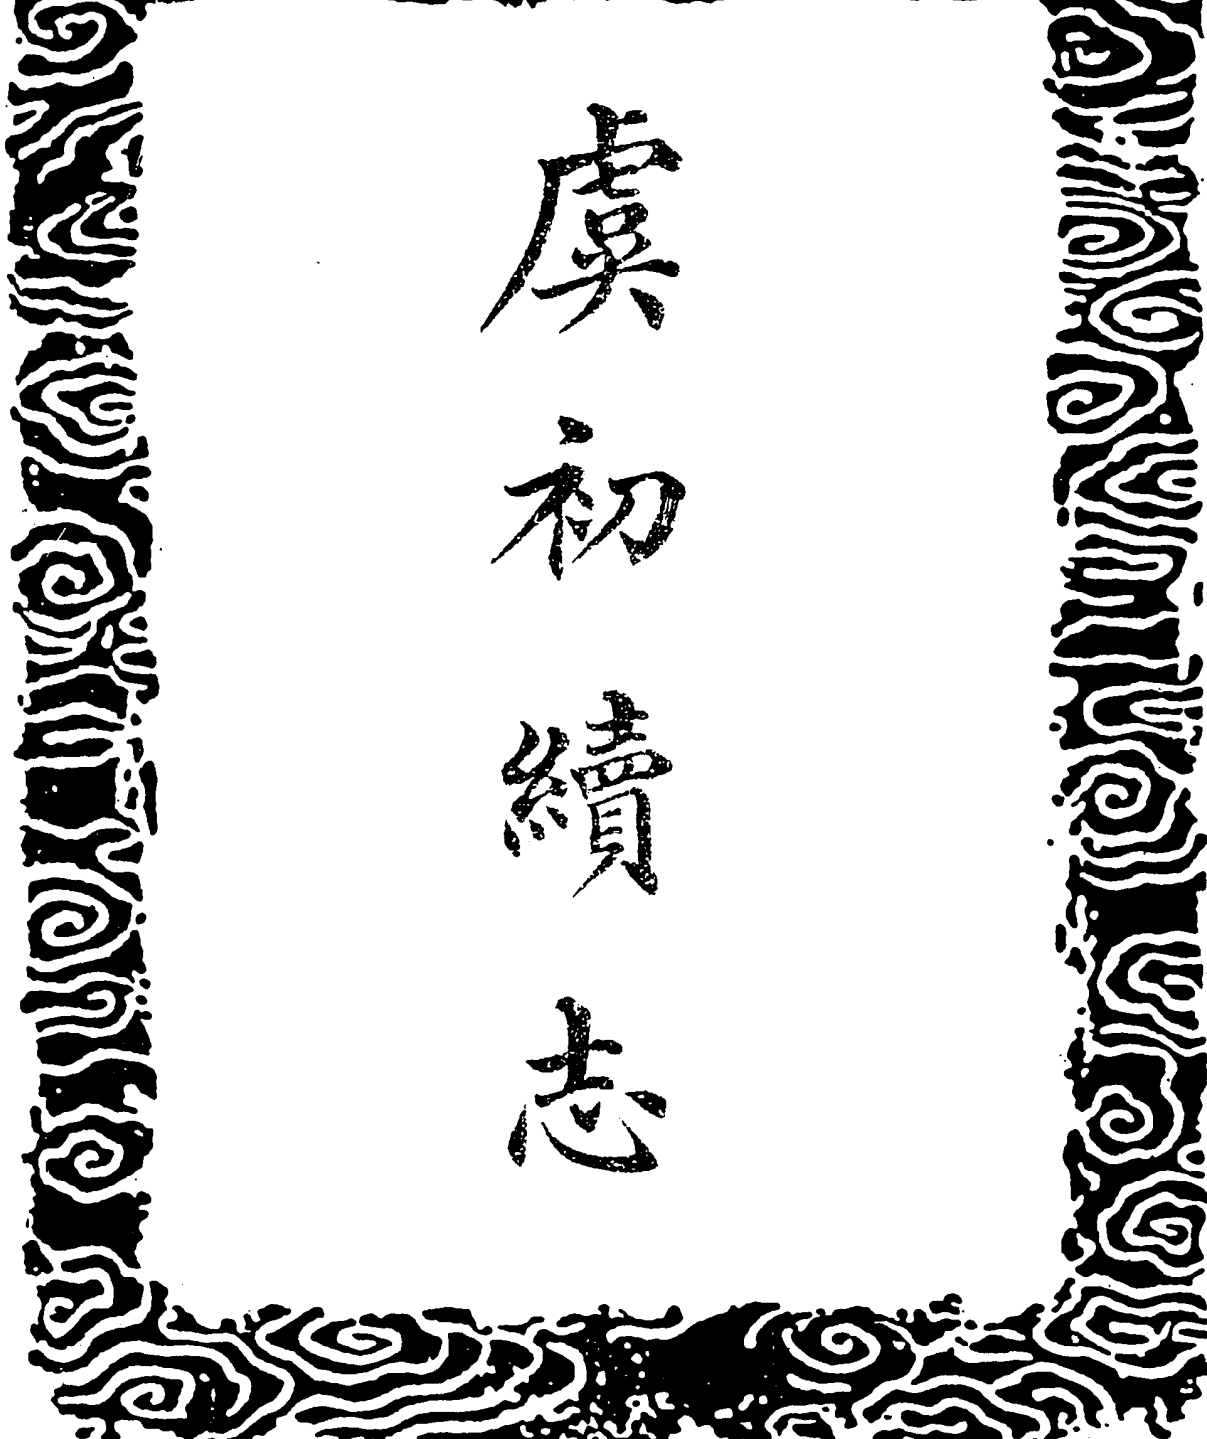 虞初續志